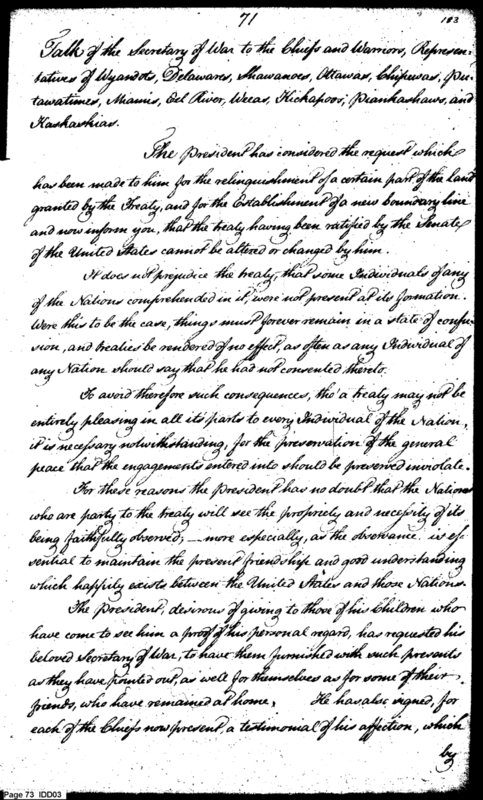 71
103
Talk of the Secretary of War to the Chiefs and Warriors, Represen-
tatives of Wyandots, Delawares, Shawanoes, Ottawas, Chipewas, Pu-
tawatimes, Miamis, Eel River, Weeas, Kickapoos, Piankashaws, and
Kaskaskias.
The President has considered the request which
has been made to him for the relinquishment of a certain part of the land
granted by the Treaty, and for the Establishment of a new boundary line
and now inform you, that the treaty having been ratified by the Senate
of the United States cannot be altered or changed by him.
It does not prejudice the treaty, that some Individuals of any
of the Nations comprehended in it, were not present at its formation.
Were this to be the case, things must forever remain in a state of confu-
sion, and treaties be rendered of no effect, as often as any Individual of
any Nation should say that he had not consented thereto.
To avoid therefore such consequences, tho' a treaty may not be
entirely pleasing in all its parts to every Individual of the Nation,
it is necessary notwithstanding, for the preservation of the general
peace that the engagements entered into should be preserved inviolate.
For these reasons the President has no doubt that the Nations
who are party to the treaty will see the propriety and necessity of its
being faithfully observed; — more especially, as the observance is es-
sential to maintain the present friendship and good understanding
which happily exists between the United States and those Nations.
The President, desirous of giving to those of his Children who
have come to see him a proof of his personal regard, has requested his
beloved Secretary of War, to have them furnished with such presents
as they have pointed out, as well for themselves as for some of their
friends, who have remained at home, He has also signed, for
each of the Chiefs now present, a testimonial of his affection, which
by
Page 73 IDD03